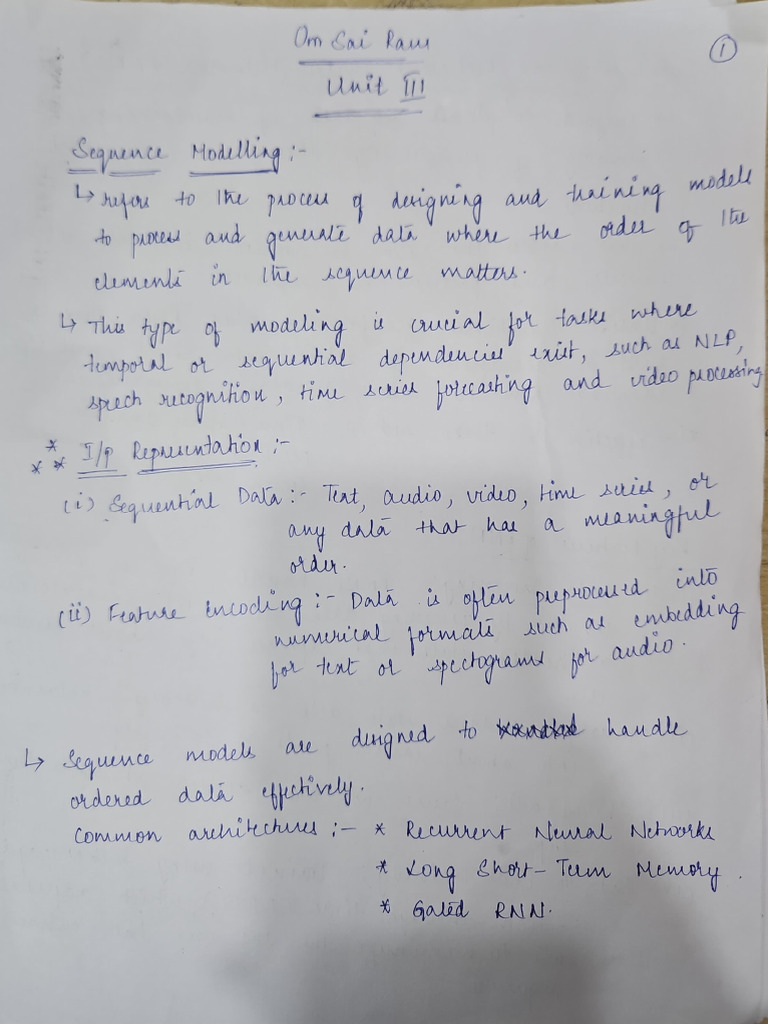 Om Sai Ram
①
Unit III
Sequence Modelling :-
↳ refers to the process of designing and training models
to process and generate data where the order of the
elements in the sequence matters.
↳ This type of modeling is crucial for tasks where
temporal or sequential dependencies exist, such as NLP,
speech recognition, time series forecasting and video processing
*** I/p Representation :-
(i) Sequential Data :- Text, audio, video, time series, or
any data that has a meaningful
order.
(ii) Feature encoding :- Data is often preprocessed into
numerical formats such as embedding
for text or spectograms for audio.
↳ Sequence models are designed to handle
ordered data effectively.
Common architectures :- * Recurrent Neural Networks
* Long Short-Term Memory.
* Gated RNN.